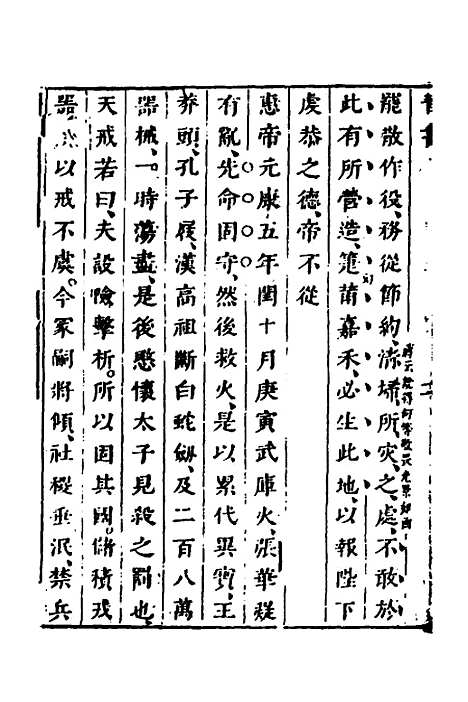 罷散作役、務從節約、清埽所灾之處、不敢於
此有所營造、箑莆嘉禾、必生此地、以報陛下
虔恭之德、帝不從
惠帝元康五年閏十月庚寅武庫火、張華疑
有亂先命固守、然後救火、是以累代異寶、王
莽頭、孔子屐、漢高祖斷白蛇劔、及二百八萬
器械、一時蕩盡、是後愍懷太子見殺之罰也、
天戒若曰、夫設險擊柝。所以固其國。儲積戎
器以戒不虞。今冢嗣將傾、社稷垂泯、禁兵